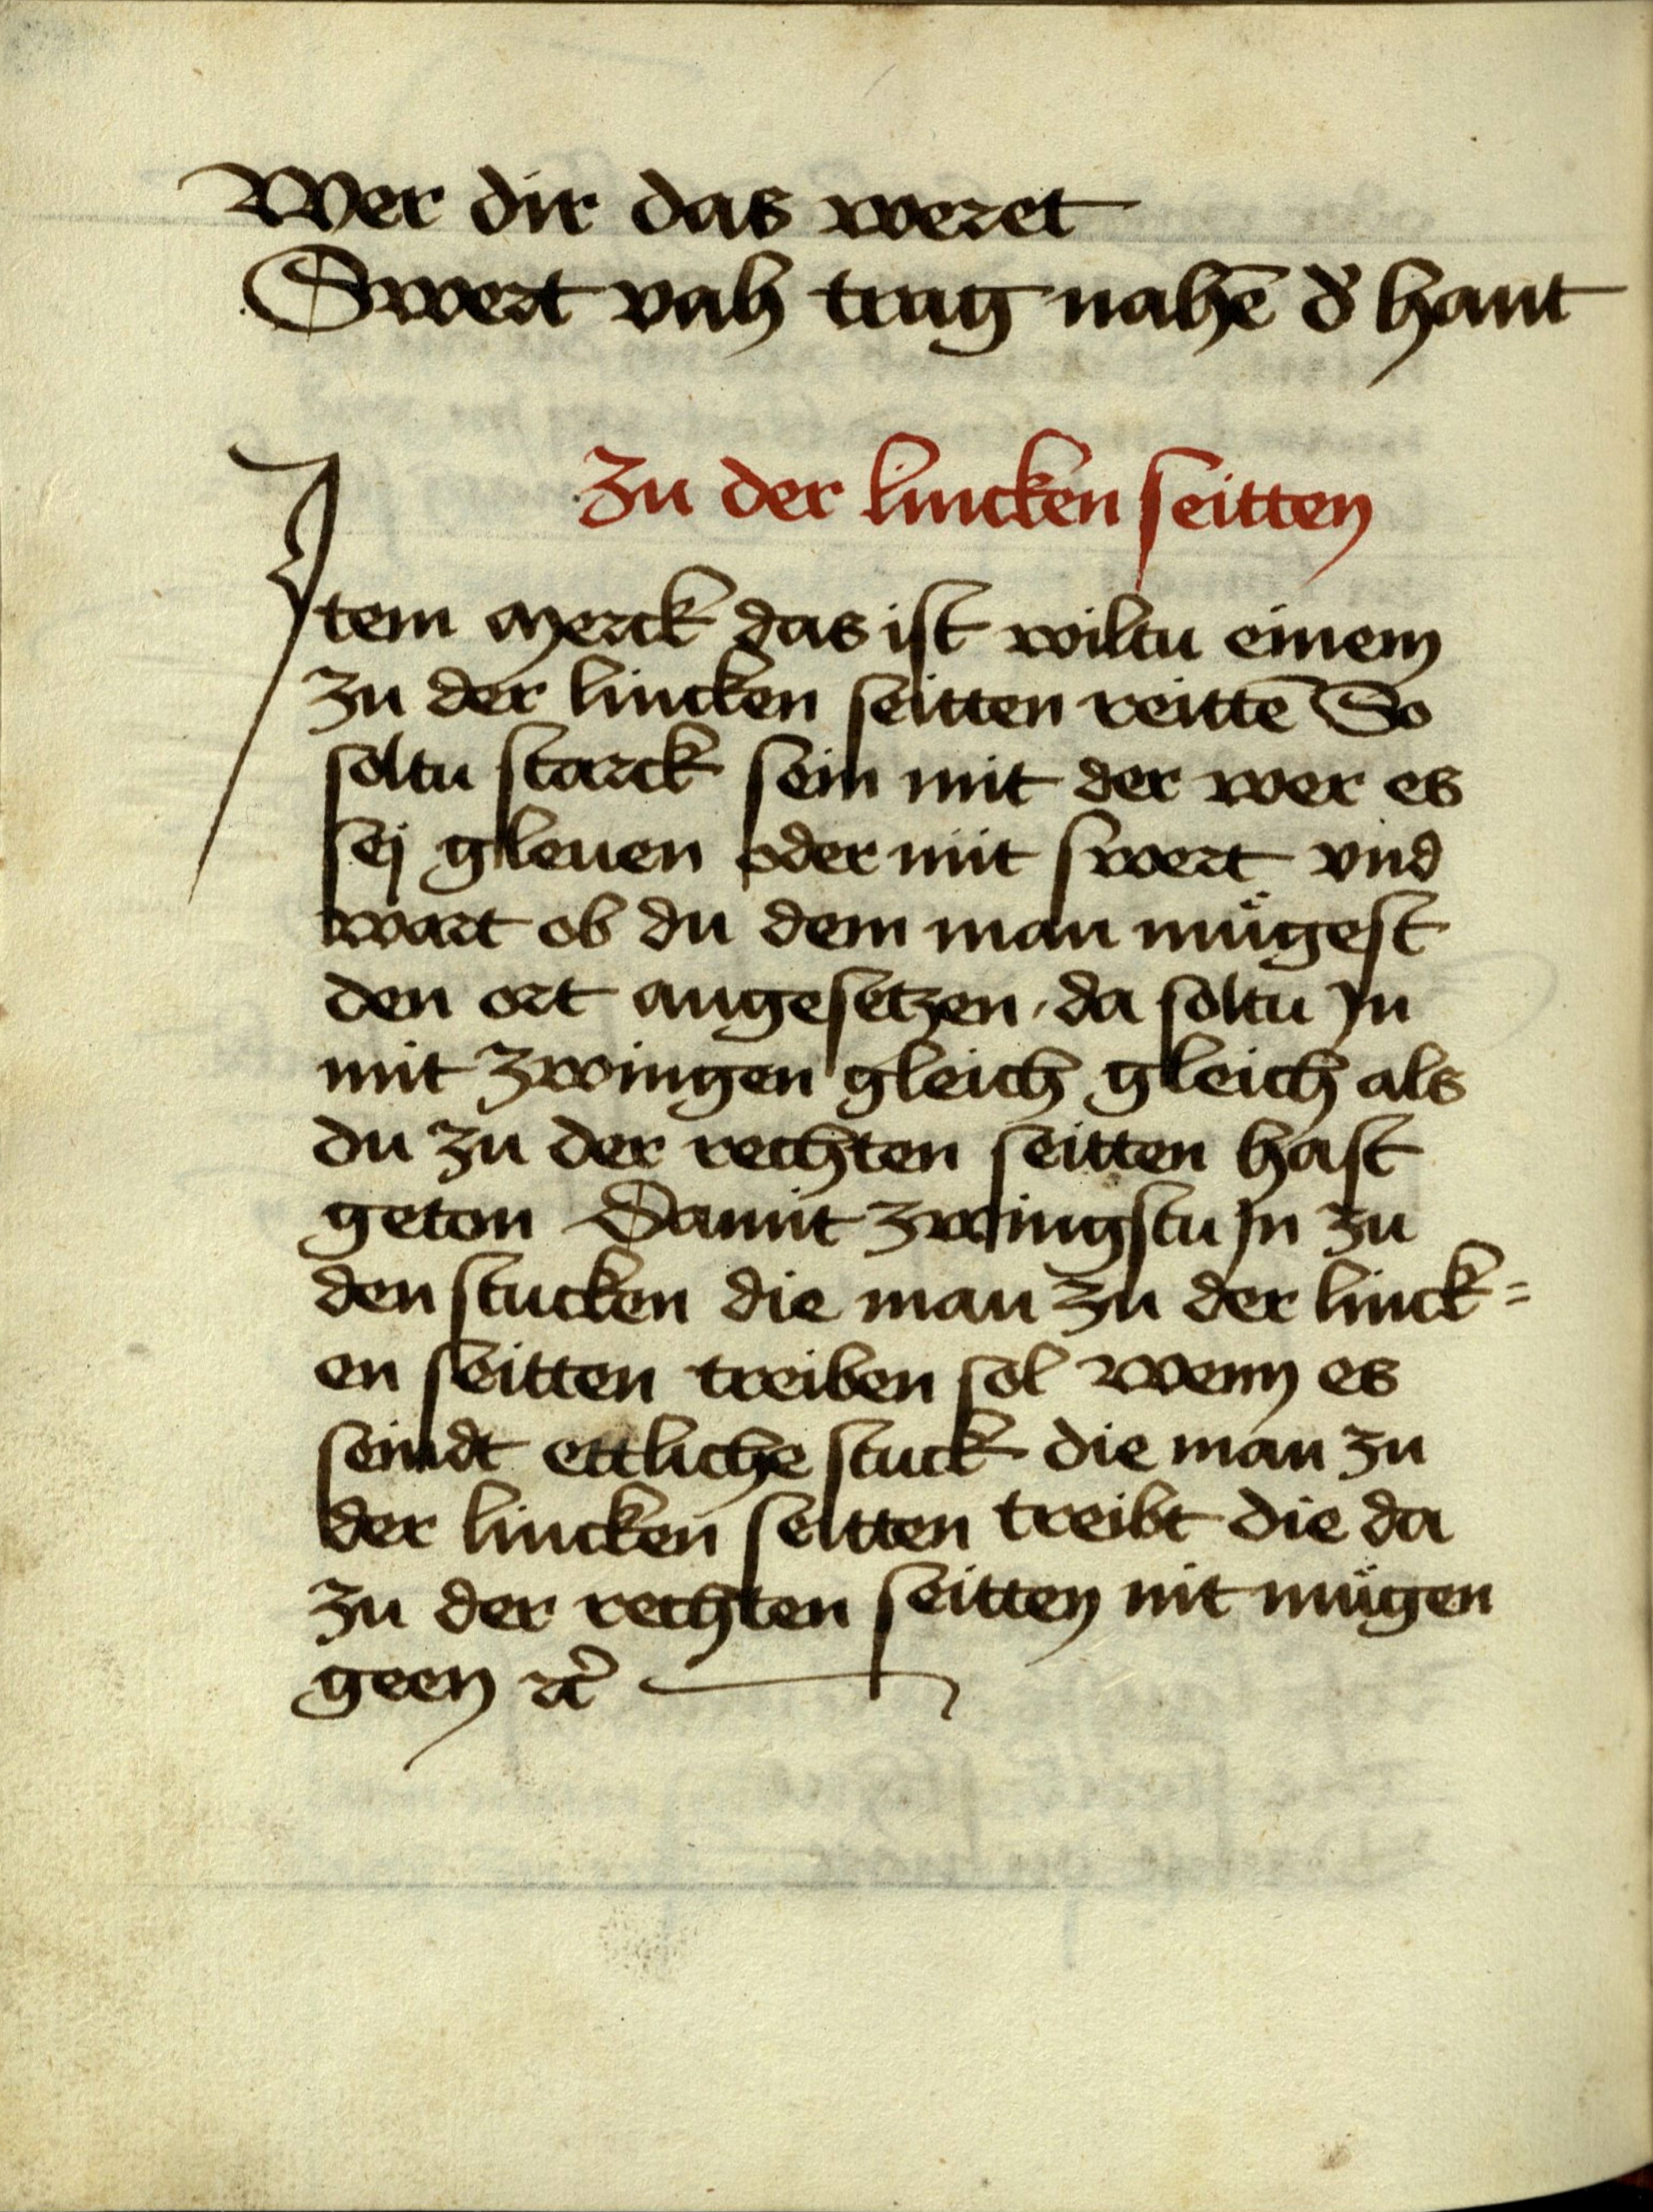 Wer dir das weret
Swert vah trag nahē d' hant
Zu der lincken seitten
Item merck das ist wiltu einem
zu der lincken seitten reittē So
soltu starck sein mit der wer es
sej gleuen oder mit swert vnd
wart ob du dem man mügest
den ort angesetzen, da soltu Jn
mit zwingen gleich gleich als
du zu der rechten seitten hast
geton Damit zwingstu Jn zu
den stucken die man zu der linck=
en seitten treiben sol wenn es
seindt ettliche stuck die man zu
der lincken seitten treibt die da
zu der rechten seitten nit mügen
geen ꝛc̃